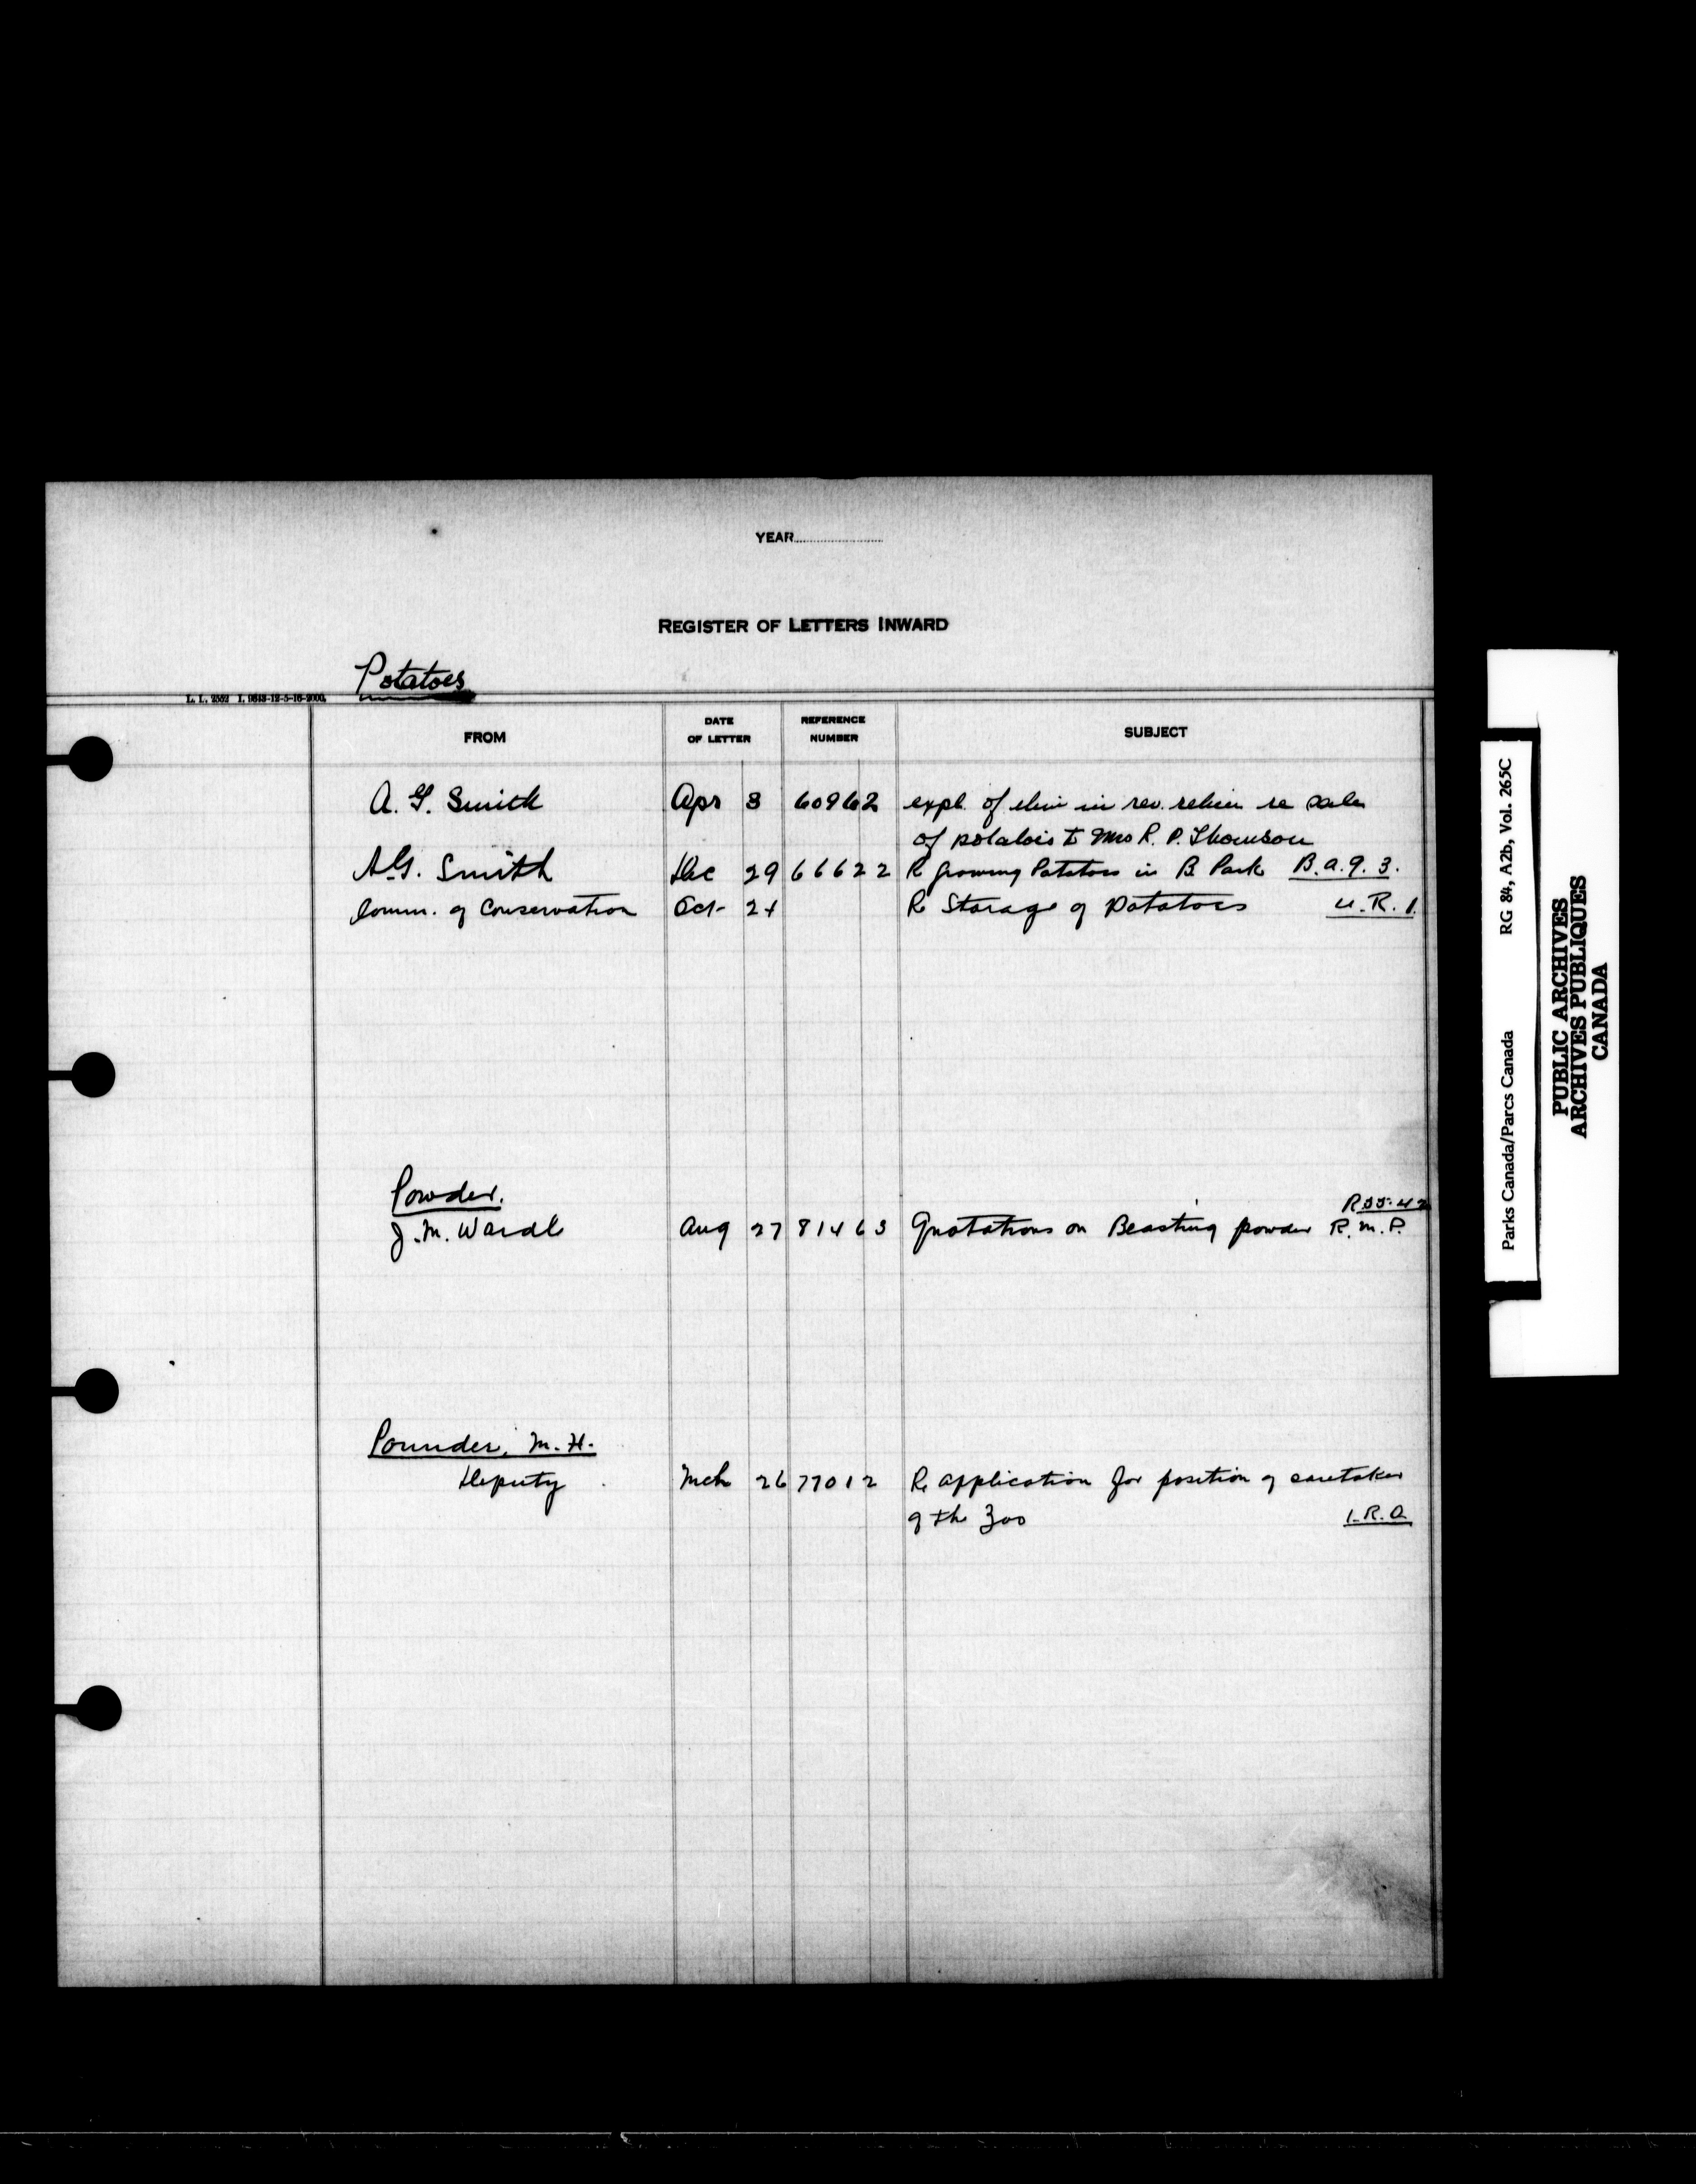 YEAR
REGISTER OF LETTERS INWARD
Potatoes
L. L. 2552 I. 9843-12-5-16-2000.
FROM DATE OF LETTER REFERENCE NUMBER SUBJECT
A. G. Smith Apr 8 60962 expl. of in rev. re sales
of potatoes to Mrs R. P. Thomson
A.G. Smith Dec 29 66622 R growing Potatoes in B Park B.a.9.3.
Comm. of Conservation Oct 24 Re Storage of Potatoes U.R.1.
Powder. R55.42
J. M. Wardle Aug 27 81463 Quotations on Beasting powder R.M.P.
Pounder, M. H.
Deputy Mch 26 77012 Re application for position of caretaker
of the Zoo 1.R.a
RG 84, A2b, Vol. 265C
Parks Canada/Parcs Canada
PUBLIC ARCHIVES
ARCHIVES PUBLIQUES
CANADA